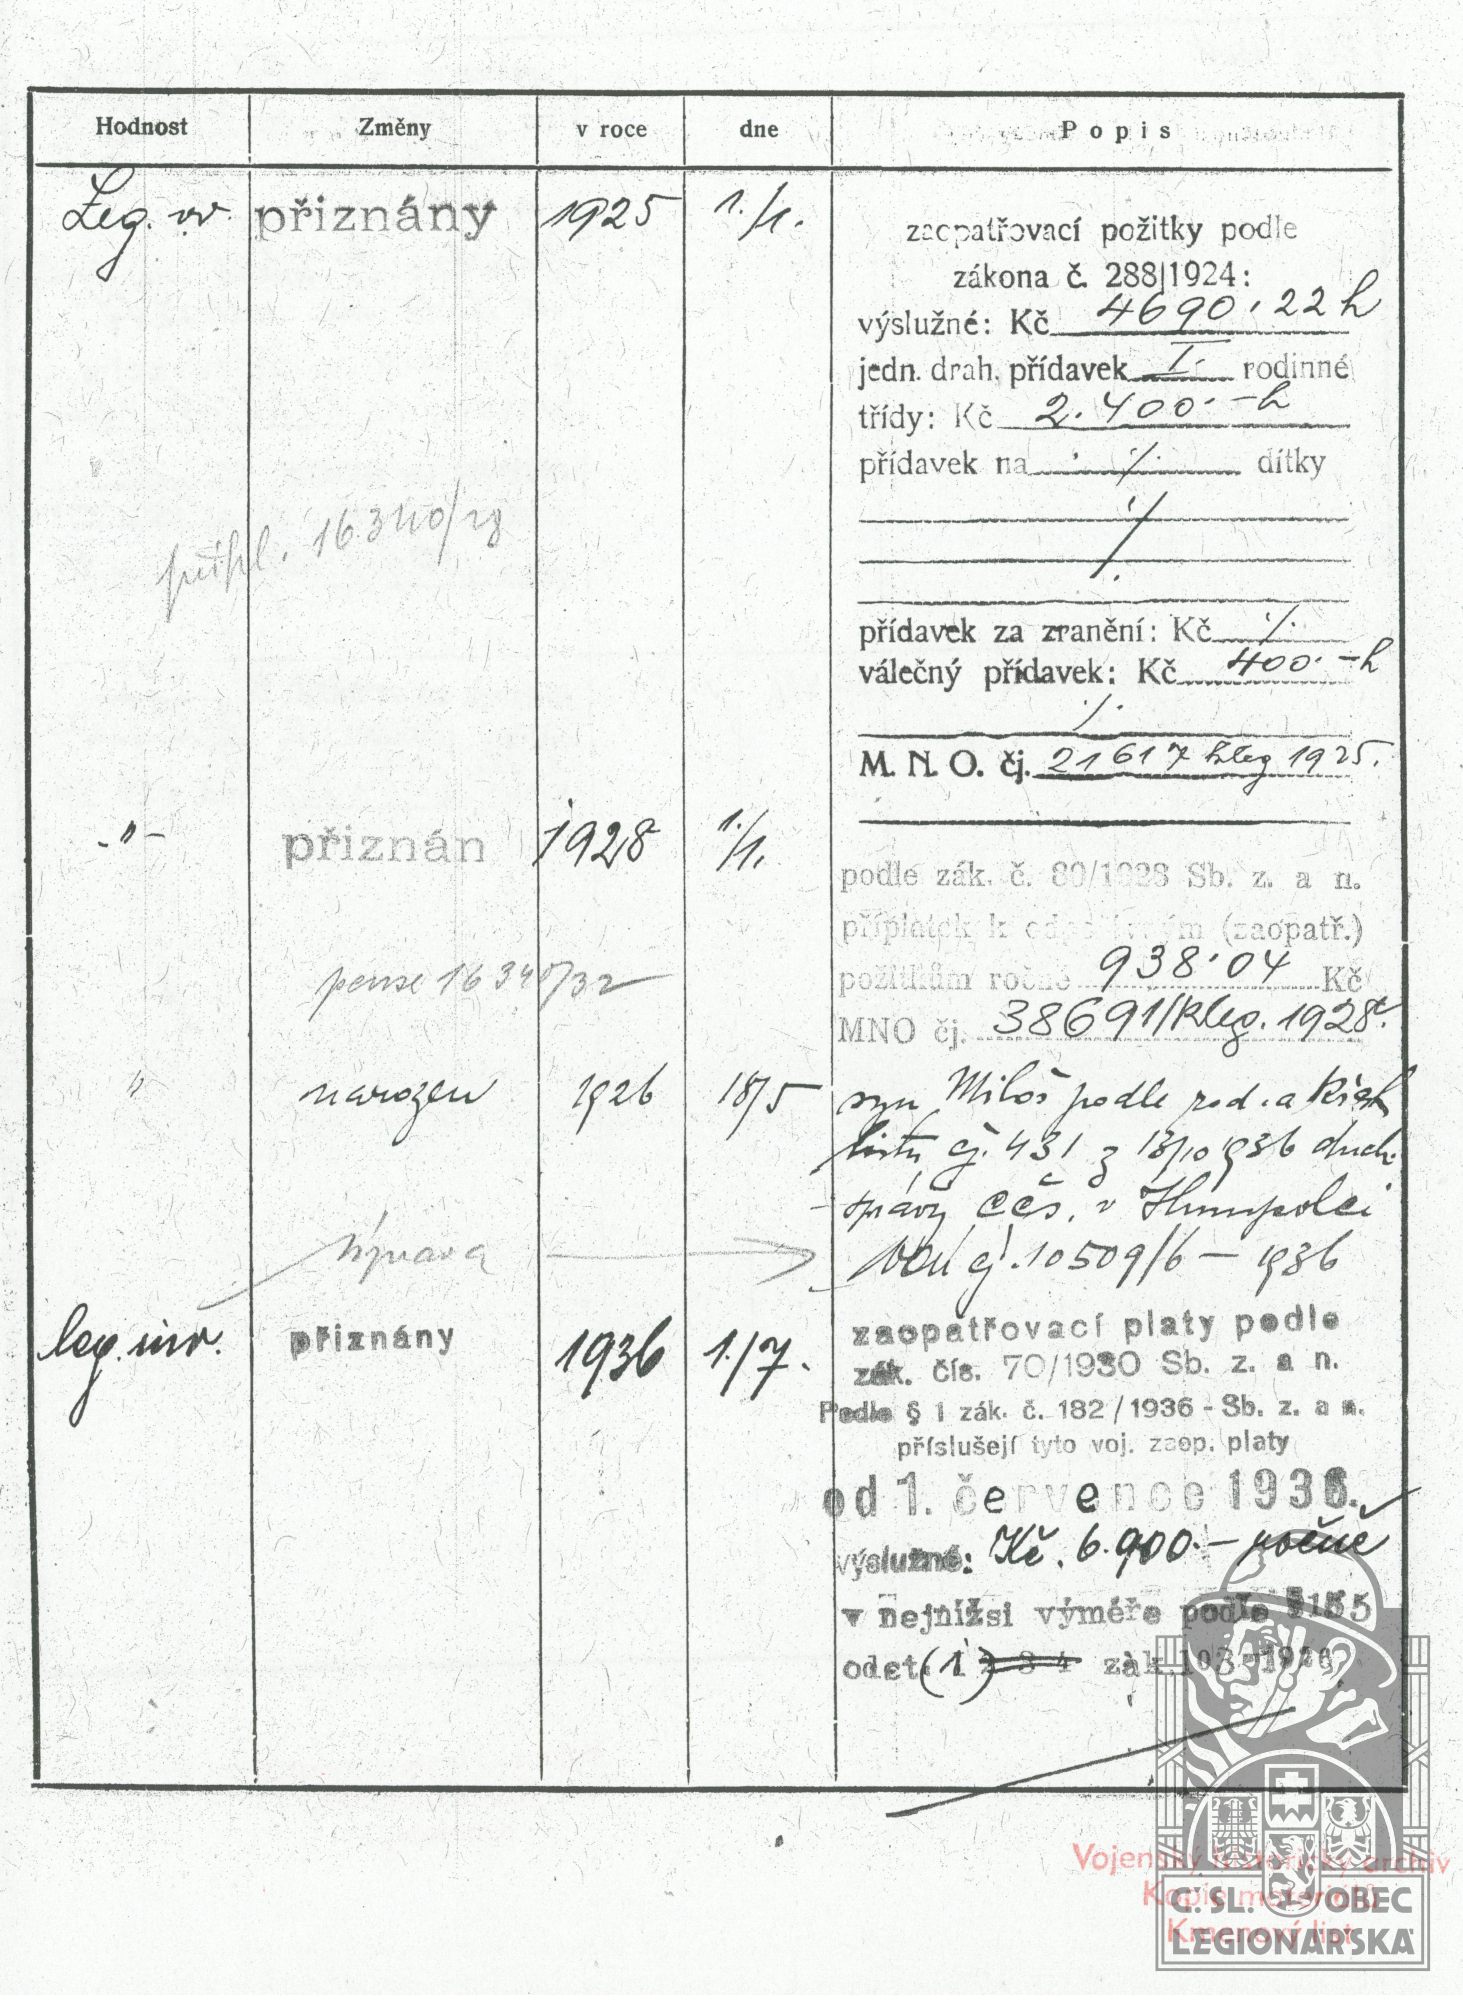 Hodnost Změny v roce dne Popis
Leg. vv. přiznány 1925 1./1.
zaopatřovací požitky podle
zákona č. 288|1924:
výslužné: Kč 4690.22 h
jedn. drah. přídavek I. rodinné
třídy: Kč 2.400.-h
přídavek na ./. dítky
./.
přídavek za zranění: Kč ./.
válečný přídavek: Kč 400.-h
./.
M. N. O. čj. 21617 kleg 1925.
16340/28
-"- přiznán 1928 1./1.
podle zák. č. 80/1928 Sb. z. a n.
příplatek k odpočivným (zaopatř.)
požitkům ročně 938.04 Kč
MNO čj. 38691/kleg. 1928.
pense 16340/32
" narozen 1926 18/5 syn Miloš podle rod. a křest
listu čj. 431 z 13/10 1936 duch.
správy CČS. v Humpolci
čj. 10509/6 - 1936
leg. inv. přiznány 1936 1./7.
zaopatřovací platy podle
zák. čís. 70/1930 Sb. z. a n.
Podle § 1 zák. č. 182/1936 - Sb. z. a n.
příslušejí tyto voj. zaop. platy
od 1. července 1936.
výslužné: Kč. 6.900.- ročně
v nejnižsí výměře podle §155
odst. (1) 2 3 4 zák. 103-1926
Vojenský historický archiv
Kopie materiálů
Kmenový list
Č. SL. OBEC
LEGIONÁŘSKÁ